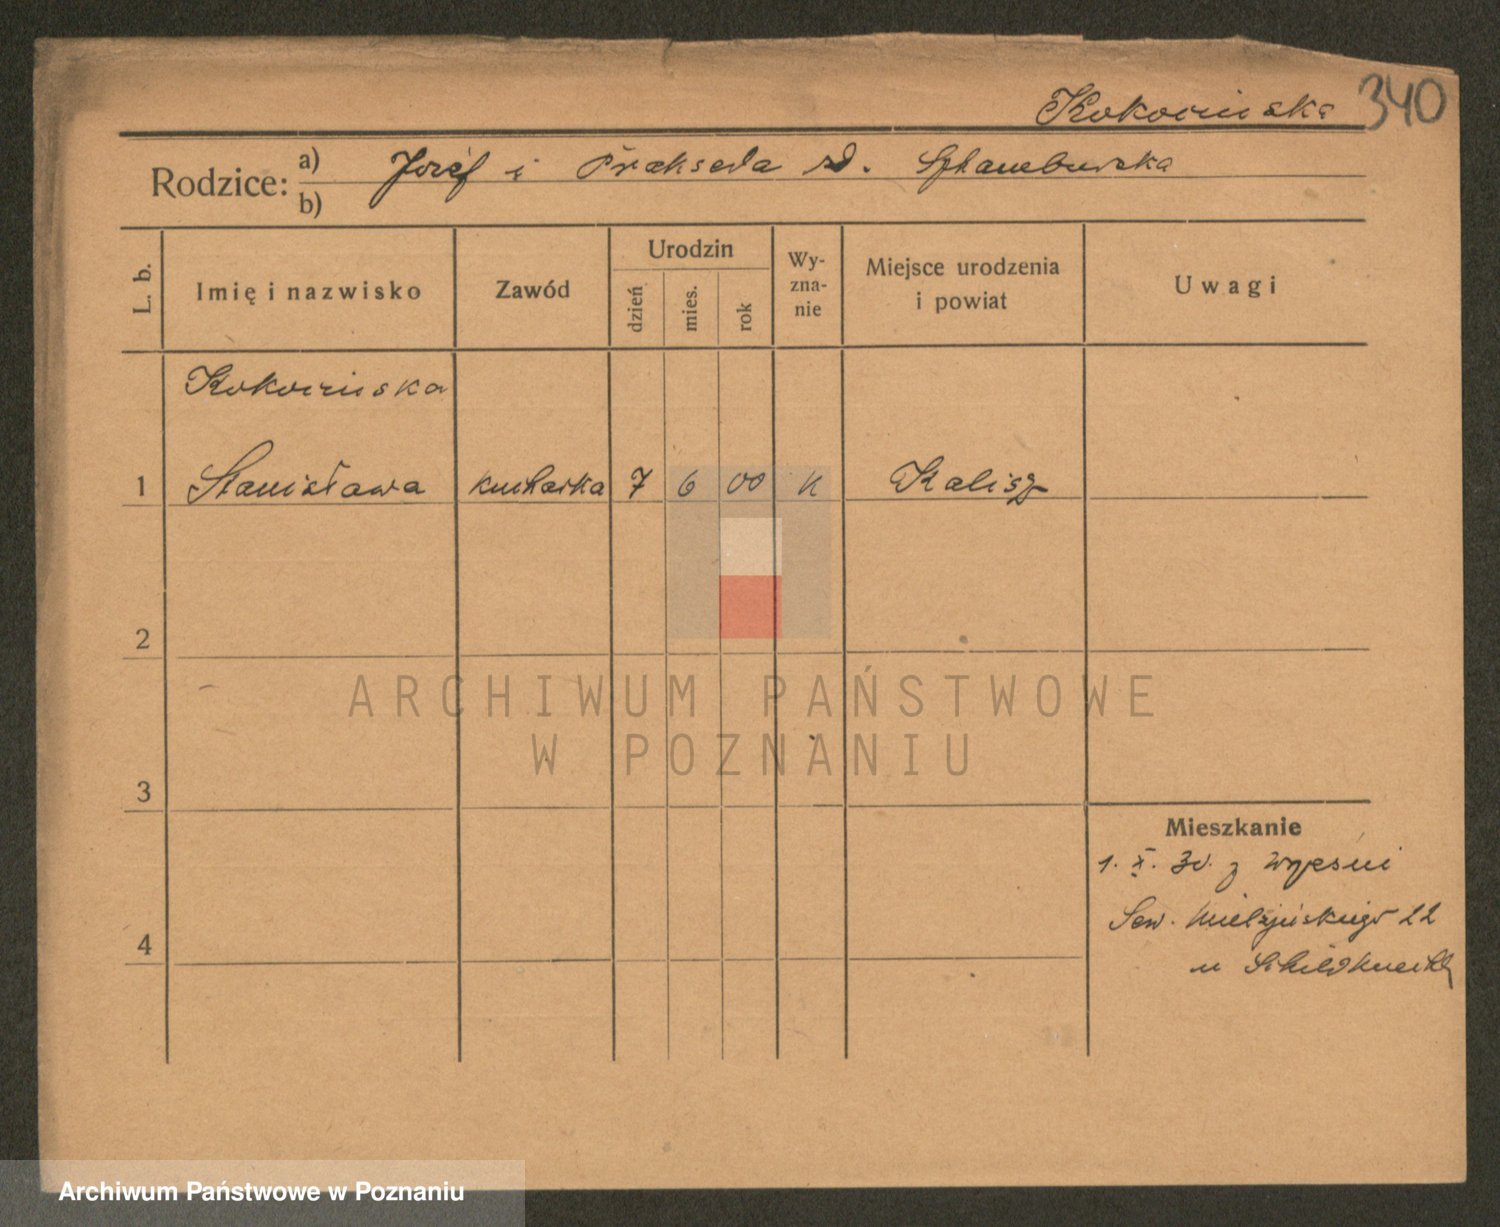 Kokocińska 340
Rodzice: a) Józef i Prakseda d.
b)
L. b.
Imię i nazwisko
Zawód
Urodzin
dzień
mies.
rok
Wy-
zna-
nie
Miejsce urodzenia
i powiat
Uwagi
Kokocińska
1 Stanisława kucharka 7 6 00 k Kalisz
2
ARCHIWUM PAŃSTWOWE
W POZNANIU
3
Mieszkanie
1. X. 30. z Wrześni
Sew. Mielżyńskiego 22
4
u Schildknecht
Archiwum Państwowe w Poznaniu